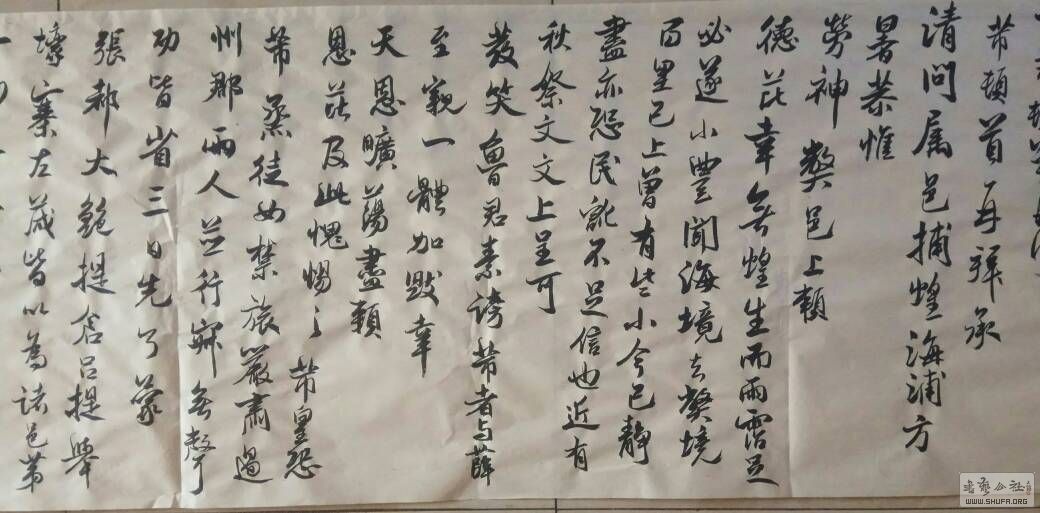 芾頓首再拜承
清問属邑捕蝗海浦方
暑恭惟
勞神 弊邑上賴
德芘幸無蝗生而雨霑足
必遂小豐聞海境去弊境
百里已上曾有些小今已静
盡亦恐民訛不足信也近有
秋祭文文上呈可
發笑魯君素謗芾者与薛
至親一體加毀幸
天恩曠蕩盡賴
恩芘及此愧惕々 芾皇恐
芾烝徒如禁旅嚴肅過
州郡兩人並行寂無聲
功皆省三日先了蒙
張都大鮑提倉吕提舉
壕寨左藏皆以為諸邑第
WWW.SHUFA.ORG